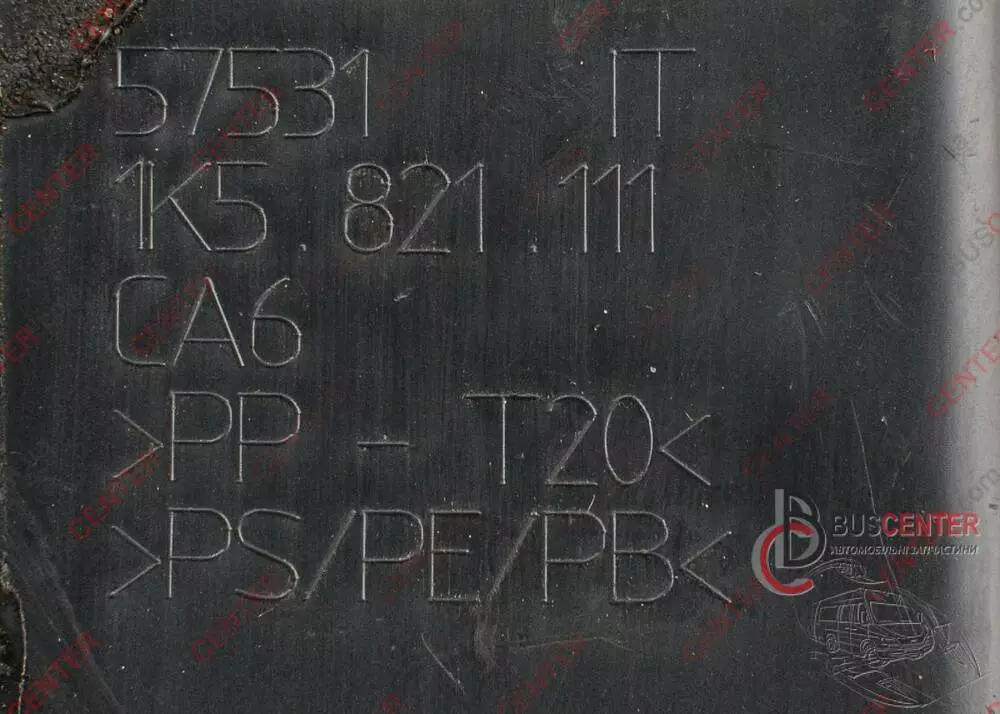 57531 IT
1K5.821.111
CA6
>PP - T20<
>PS/PE/PB<
BUSCENTER
АВТОМОБІЛЬНІ ЗАПЧАСТИНИ